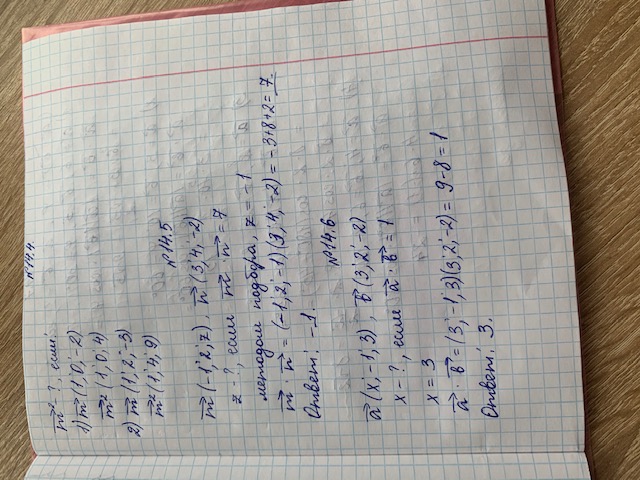 №14.4.
m² - ?, если:
1) m (1; 0; -2)
m² (1; 0; 4)
2) m (1; 2; -3)
m² (1; 4; 9)
№14.5
m (-1; 2; z), n (3; 4; -2)
z - ?, если m · n = 7
методом подбора, z = -1
m · n = (-1; 2; -1)(3; 4; -2) = -3+8+2 = 7.
Ответ: -1
№14.6
a (x; -1; 3), b (3; 2; -2)
x - ?, если a · b = 1
x = 3
a · b = (3; -1; 3)(3; 2; -2) = 9-8 = 1
Ответ: 3.